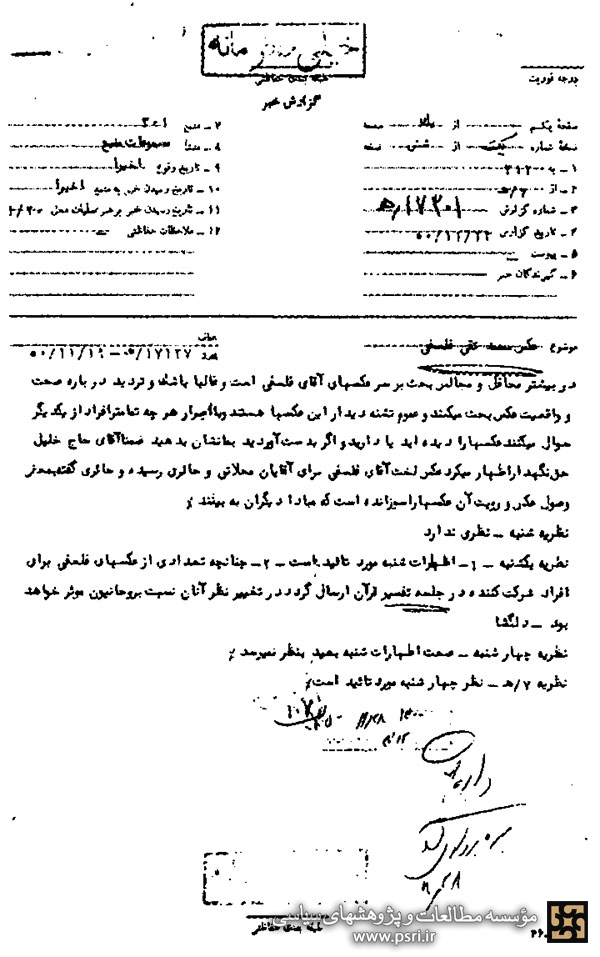 خیلی محرمانه
طبقه بندی حفاظتی
درجه فوریت
گزارش خبر
صفحه یکم از یک صفحه
نسخه شماره یک از شش نسخه
۱ ـ به ۳۱۲۰
۲ ـ از ۷/هـ
۳ ـ شماره گزارش ۱۷۲۰۱/هـ
۴ ـ تاریخ گزارش ۵۰/۱۲/۲۲
۵ ـ پیوست
۶ ـ گیرندگان خبر
۷ ـ منبع
۸ ـ منشا مسموعات منبع
۹ ـ تاریخ وقوع اخیرا
۱۰ ـ تاریخ رسیدن خبر به منبع اخیرا
۱۱ ـ تاریخ رسیدن خبر به رهبر عملیات محل
۱۲ ـ ملاحظات حفاظتی
موضوع عکس محمد تقی فلسفی
۵۰/۱۱/۱۹ - ۱۷۱۲۷/هـ
در بیشتر محافل و مجالس بحث بر سر عکسهای آقای فلسفی است و غالبا باشک و تردید در باره صحت
و واقعیت عکس بحث میکنند و عموم تشنه دیدار این عکسها هستند وبااصرار هر چه تمامترافراد از یکدیگر
سوال میکنند عکسها را دیده اید یا دارید و اگر بدست آوردید بمانشان بدهید ضمنا آقای حاج خلیل
حق نگهدار اظهار میکرد عکس لخت آقای فلسفی برای آقایان محلاتی و حائری رسیده و حائری گفته بمحض
وصول عکس و رویت آن عکسها را سوزانده است که مبادا دیگران به بینند
نظریه شنبه ـ نظری ندارد
نظریه یکشنبه ـ ۱ـ اظهارات شنبه مورد تائید است ـ ۲ـ چنانچه تعدادی از عکسهای فلسفی برای
افراد شرکت کننده در جلسه تفسیر قرآن ارسال گردد در تغییر نظر آنان نسبت بروحانیون موثر خواهد
بود ـ دلگشا
نظریه چهار شنبه ـ صحت اظهارات شنبه بعید بنظر نمیرسد
نظریه ۷/هـ ـ نظر چهار شنبه مورد تائید است
طبقه بندی حفاظتی
مؤسسه مطالعات و پژوهشهای سیاسی
www.psri.ir